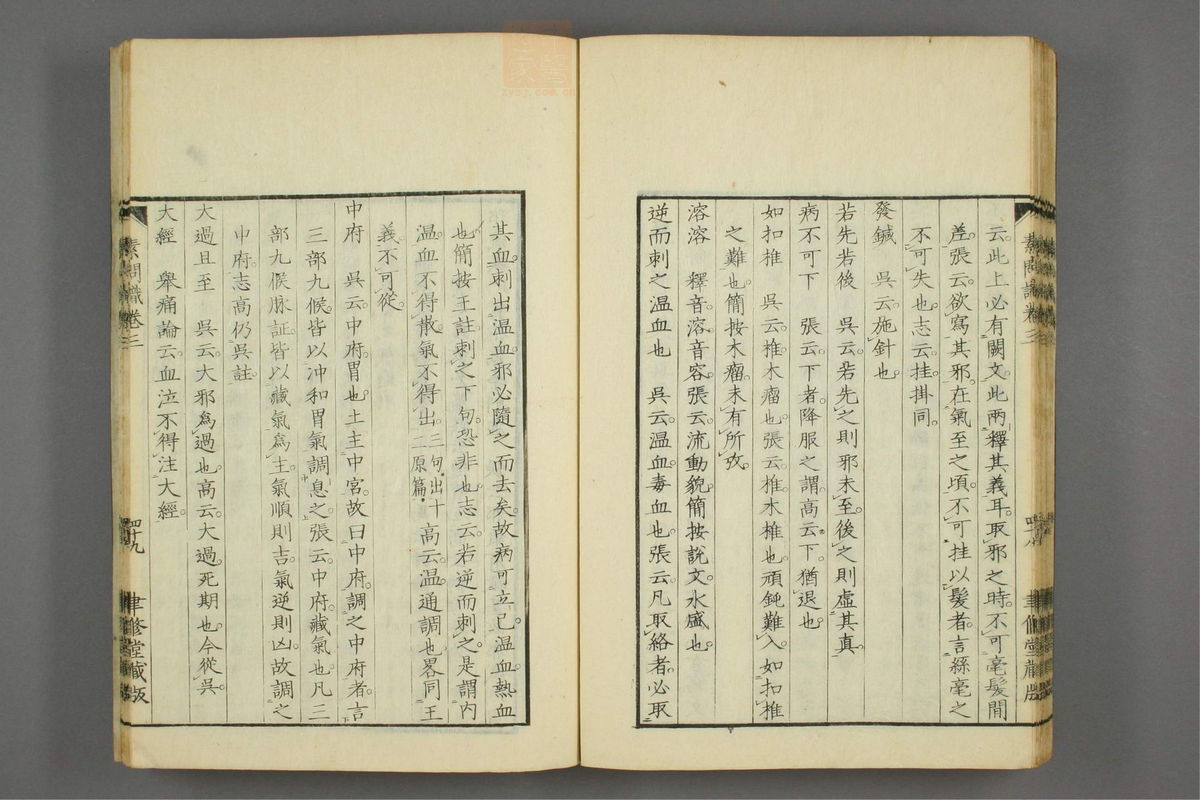 云此上必有闕文。此兩釋其義耳。取邪之時。不可毫髮閒
差。張云。欲寫其邪。在氣至之頃。不可挂以髮者。言絲毫之
不可失也。志云。挂掛同。
發鍼　吳云。施針也。
若先若後　吳云。若先之則邪未至。後之則虛其真。
病不可下　張云。下者。降服之謂。高云。下。猶退也。
如扣椎　吳云。椎。木瘤也。張云。椎。木椎也。頑鈍難入。如扣椎
之難也。簡按木瘤。未有所攷。
溶溶　釋音。溶音容。張云。流動貌。簡按說文。水盛也。
逆而刺之温血也　吳云。温血。毒血也。張云。凡取絡者。必取
其血。刺出温血。邪必隨之而去矣。故病可立已。温血。熱血
也。簡按王註刺之下句。恐非也。志云。若逆而刺之。是謂內
温。血不得散。氣不得出。二句出十二原篇。高云。温。通調也。畧同王
義。不可從。
中府　吳云。中府。胃也。土主中宮。故曰中府。調之中府者。言
三部九候。皆以冲和胃氣調息之。張云。中府。藏氣也。凡三
部九候脉証。皆以藏氣爲主。氣順則吉。氣逆則凶。故調之
中府。志高仍吳註。
大過且至　吳云。大邪爲過也。高云。大過。死期也。今從吳。
大經　舉痛論云。血泣不得注大經。
素問識卷三
四十九
聿修堂藏版